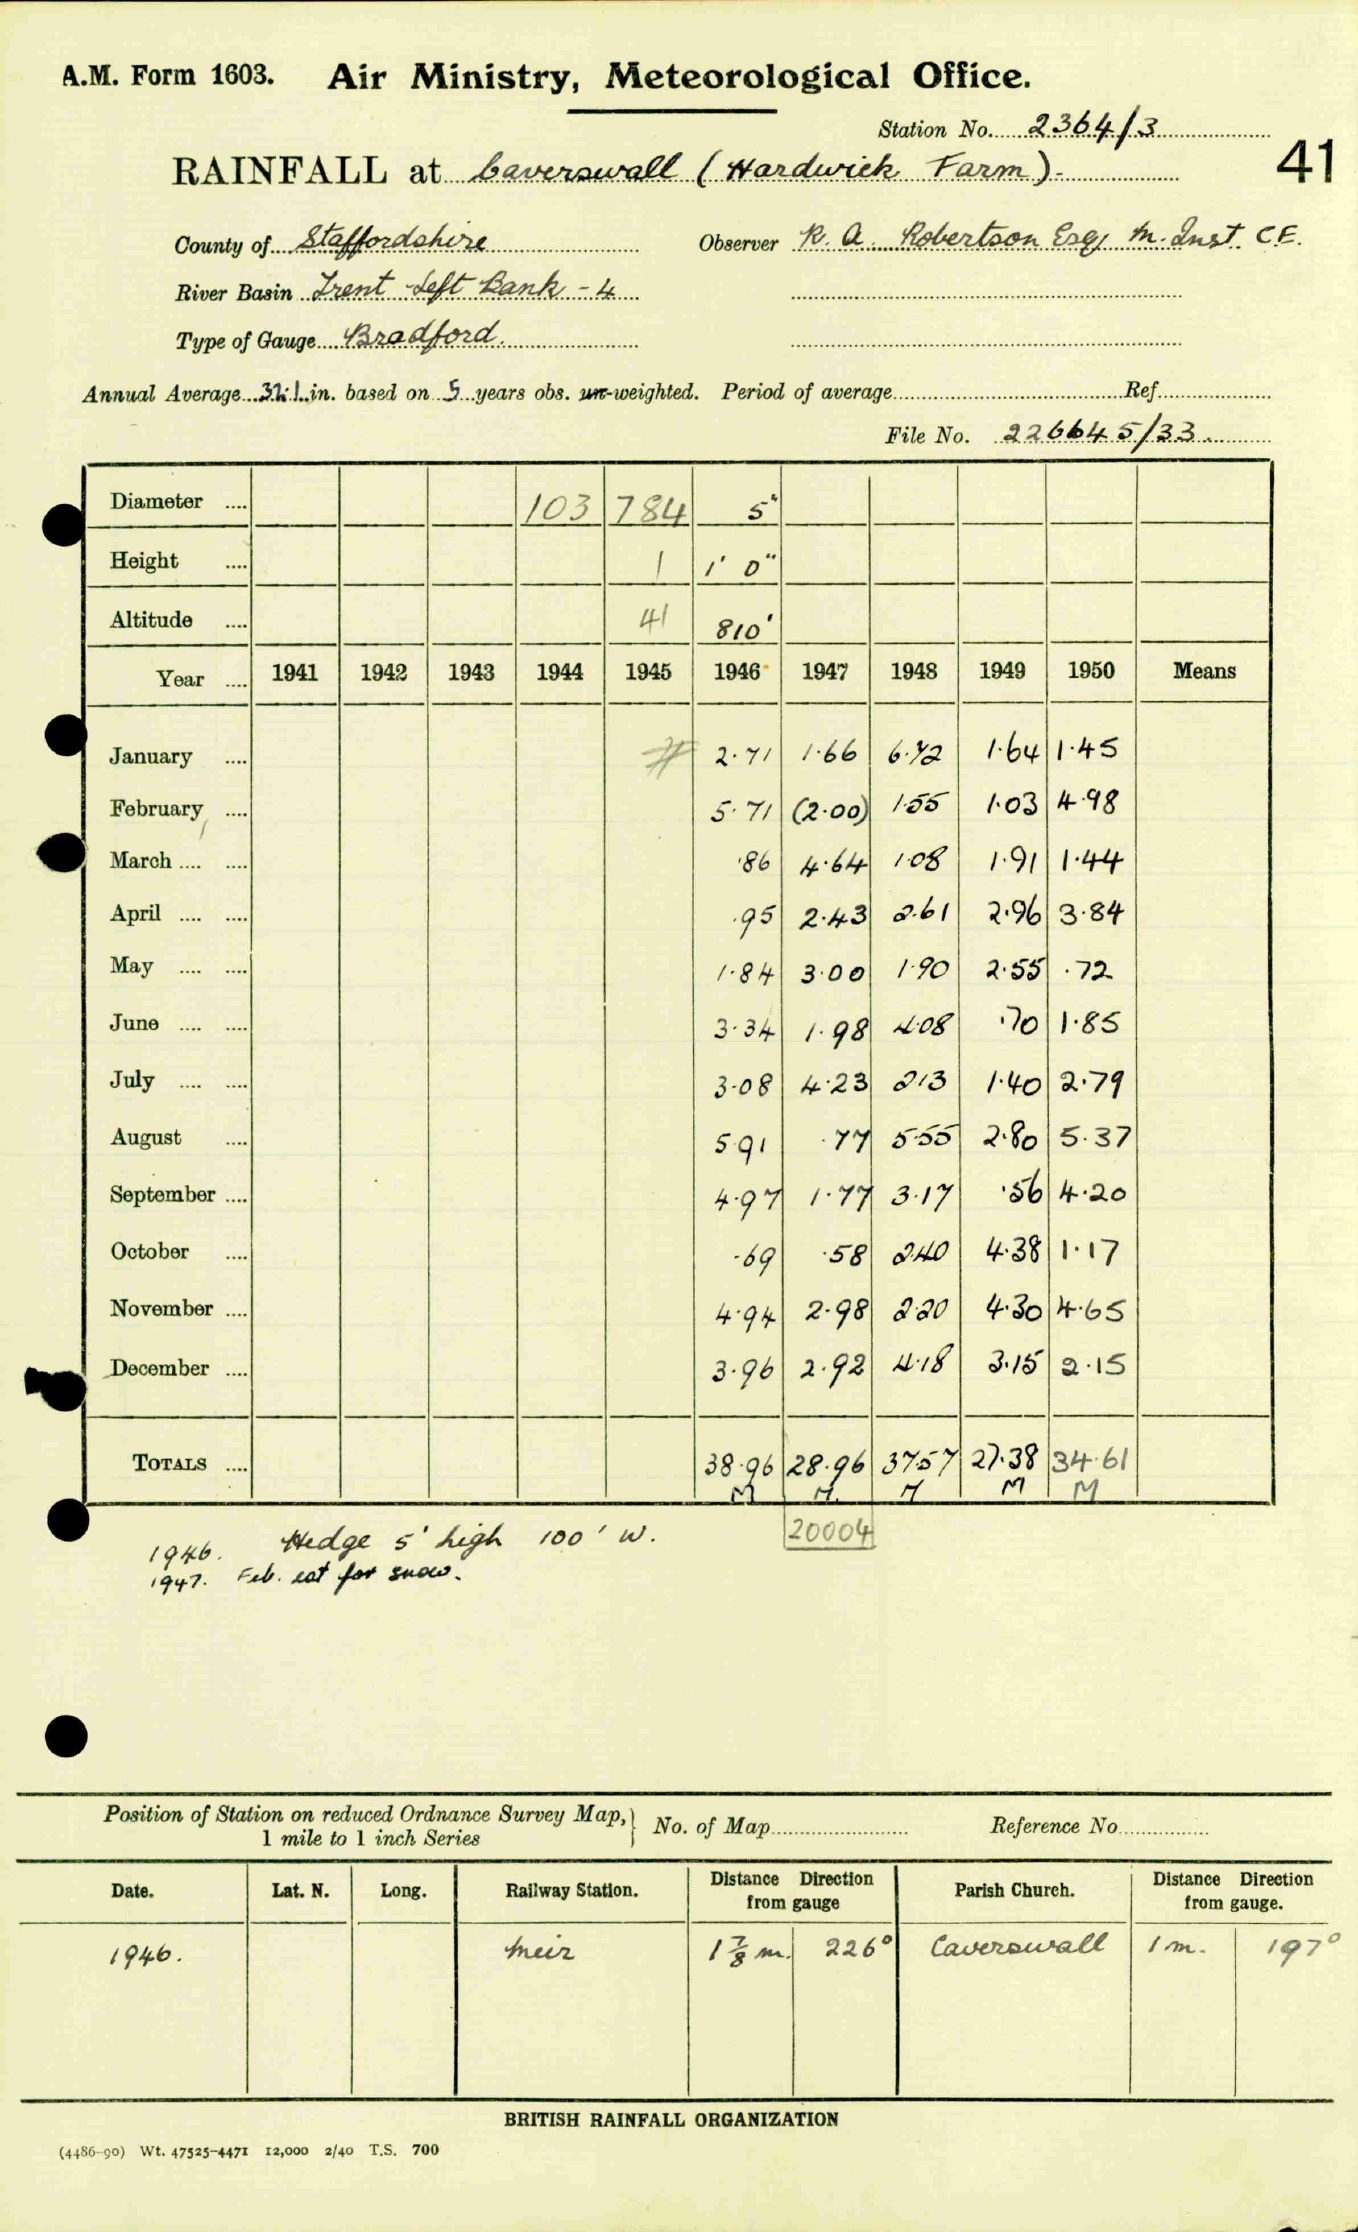 A.M. Form 1603. Air Ministry, Meteorological Office.
Station No. 2364/3
41
RAINFALL at Caverswall (Hardwick Farm).
County of Staffordshire Observer R. A. Robertson Esq, M. Inst. C.E.
River Basin Trent Left Bank - 4
Type of Gauge Bradford.
Annual Average 32.1 in. based on 5 years obs. un-weighted. Period of average Ref
File No. 226645/33
Diameter 103 784 5"
Height 1 1' 0"
Altitude 41 810'
Year 1941 1942 1943 1944 1945 1946 1947 1948 1949 1950 Means
January 2.71 1.66 6.72 1.64 1.45
February 5.71 (2.00) 1.55 1.03 4.98
March .86 4.64 1.08 1.91 1.44
April .95 2.43 2.61 2.96 3.84
May 1.84 3.00 1.90 2.55 .72
June 3.34 1.98 4.08 .70 1.85
July 3.08 4.23 2.13 1.40 2.79
August 5.91 .77 5.55 2.80 5.37
September 4.97 1.77 3.17 .56 4.20
October .69 .58 2.40 4.38 1.17
November 4.94 2.98 2.20 4.30 4.65
December 3.96 2.92 4.18 3.15 2.15
TOTALS 38.96 28.96 37.57 27.38 34.61
M M. M M M
20004
1946. Hedge 5' high 100' W.
1947. Feb. est for snow.
Position of Station on reduced Ordnance Survey Map, 1 mile to 1 inch Series No. of Map Reference No
Date. Lat. N. Long. Railway Station. Distance Direction from gauge Parish Church. Distance Direction from gauge.
1946. Meir 1 7/8 m. 226° Caverswall 1 m. 197°
BRITISH RAINFALL ORGANIZATION
(4486-90) Wt. 47525-4471 12,000 2/40 T.S. 700